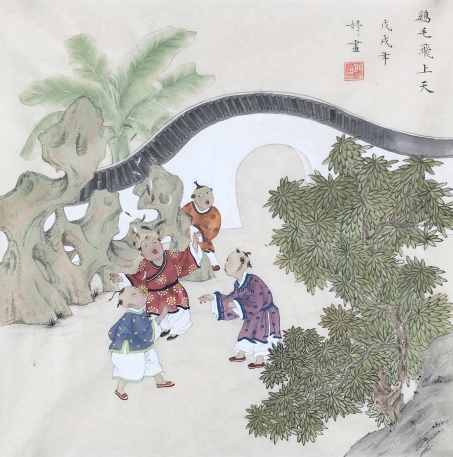 鷄毛飛上天
戊戌年
婷畫